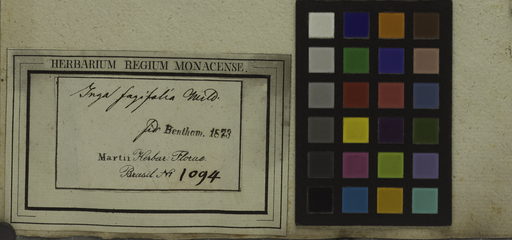 HERBARIUM REGIUM MONACENSE.
Inga fagifolia Willd.
fid Bentham. 1873
Martii Herbar. Florae
Brasil. Nr 1094